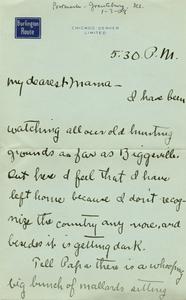 Burlington
Route
CHICAGO-DENVER
LIMITED
5:30 P.M.
My dearest Mama—
I have been
watching all our old hunting
grounds as far as Biggsville.
But here I feel that I have
left home because I don't recog-
nize the country any more, and
besides it is getting dark.
Tell Papa there is a whooping
big bunch of mallards sitting